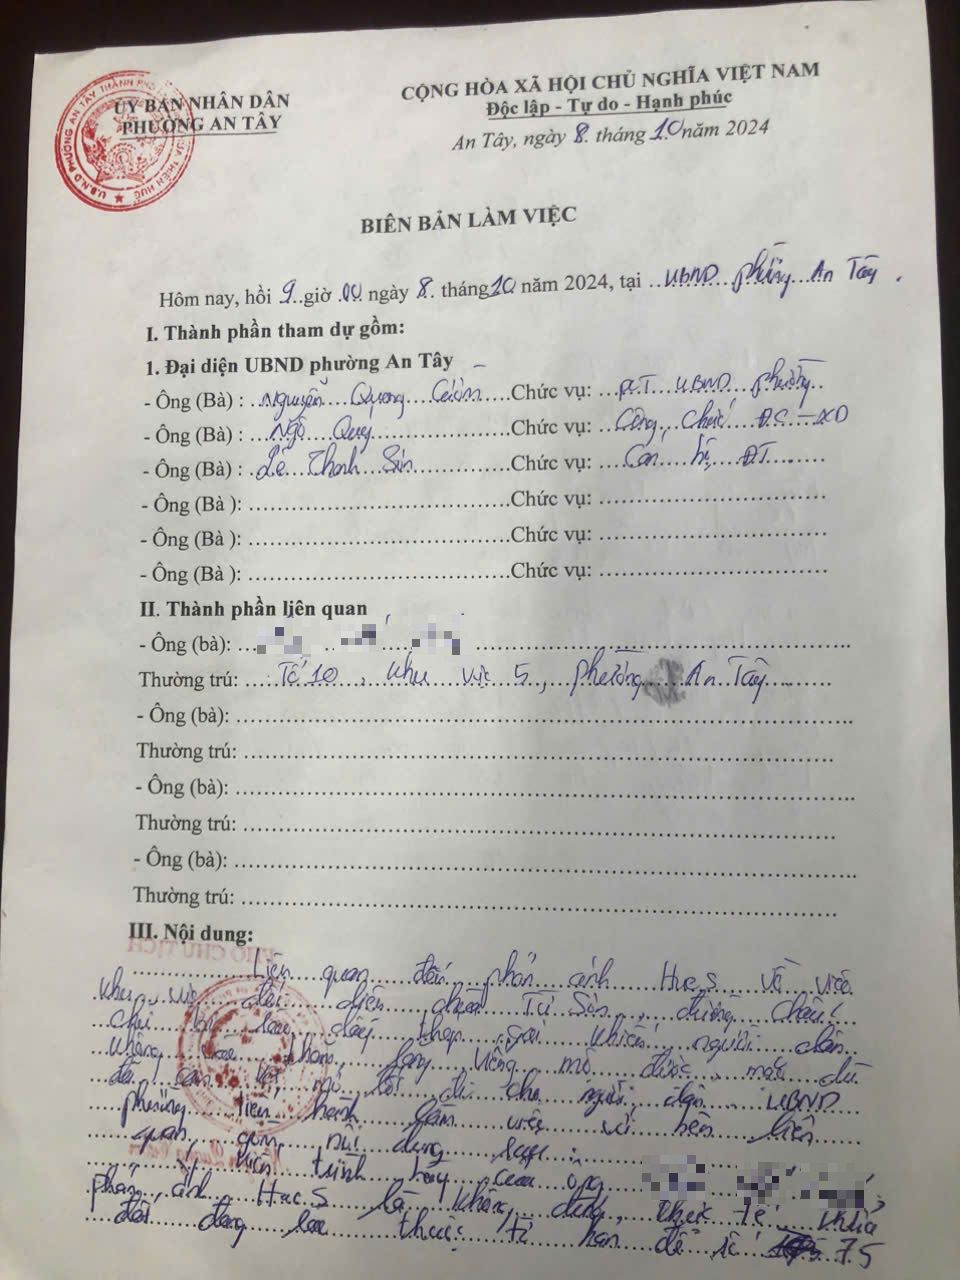 ỦY BAN NHÂN DÂN
PHƯỜNG AN TÂY
CỘNG HÒA XÃ HỘI CHỦ NGHĨA VIỆT NAM
Độc lập - Tự do - Hạnh phúc
An Tây, ngày 8. tháng 10 năm 2024
BIÊN BẢN LÀM VIỆC
Hôm nay, hồi 9 giờ 00 ngày 8. tháng 10 năm 2024, tại UBND phường An Tây.
I. Thành phần tham dự gồm:
1. Đại diện UBND phường An Tây
- Ông (Bà) : Nguyễn Quang Chức vụ: UBND phường
- Ông (Bà) : Ngô Quy Chức vụ: Công chức ĐC-XD
- Ông (Bà) : Lê Thanh Sơn Chức vụ: Cán bộ ĐT
- Ông (Bà ): Chức vụ:
- Ông (Bà ): Chức vụ:
- Ông (Bà ): Chức vụ:
II. Thành phần liên quan
- Ông (bà):
Thường trú: Tổ 10, khu vực 5, phường An Tây
- Ông (bà):
Thường trú:
- Ông (bà):
Thường trú:
- Ông (bà):
Thường trú:
III. Nội dung:
Liên quan đến phản ánh Hue S về việc
khu vực đối diện chùa Từ Sơn, đường Châu
Chữ bị rào dây thép gai khiến người dân
không vào thăm lăng viếng mộ được, mặc dù
đã cam kết mở lối đi cho người dân. UBND
phường tiến hành làm việc với bên liên
quan nội dung
Ý kiến trình bày của ông
phản ánh Hue S là không đúng, thực tế thửa
đất đang thuộc tờ bản đồ số 75